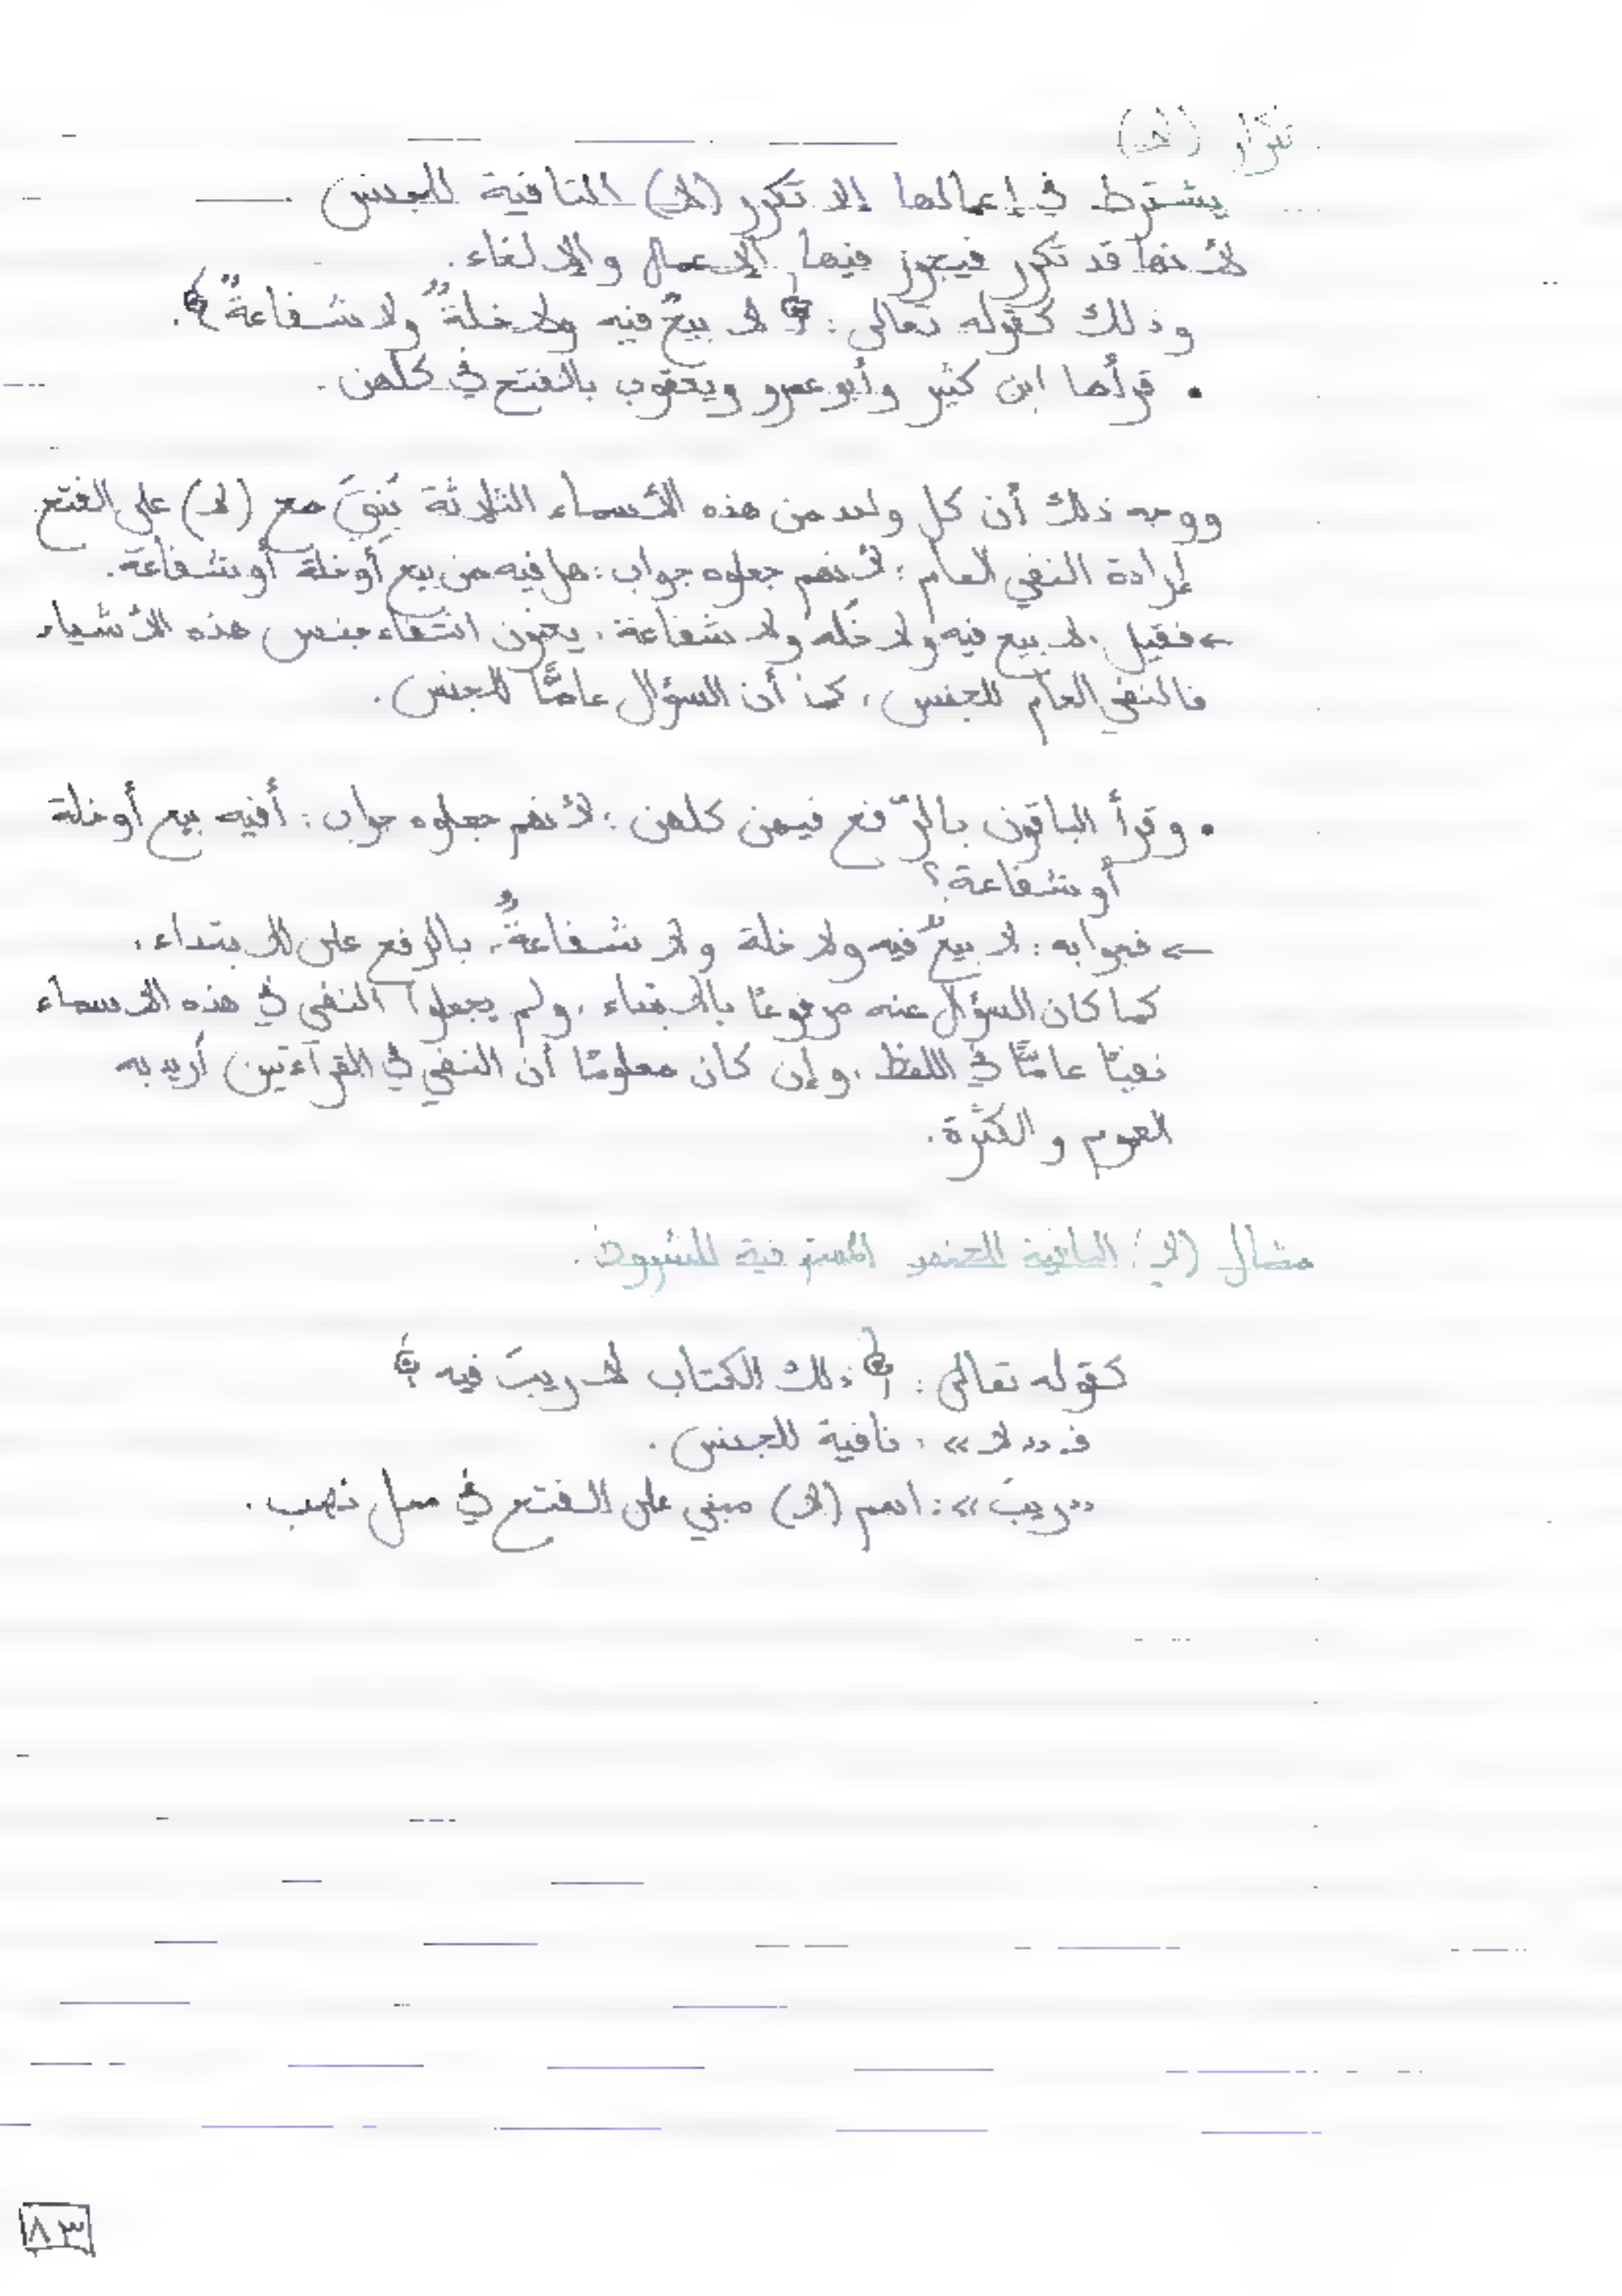 تكرار (لا)
يشترط في إعمالها إلا تكرر (لا) النافية للجنس
لأنها قد تكرر فيجوز فيها الإعمال والإلغاء.
وذلك كقوله تعالى: ﴿ لا بيعٌ فيه ولا خلةٌ ولا شفاعةٌ ﴾.
• قرأها ابن كثير وأبو عمرو ويعقوب بالفتح في كلهن.
ووجه ذلك أن كل واحد من هذه الأسماء الثلاثة بُنِيَ مع (لا) على الفتح
لإرادة النفي العام؛ لأنهم جعلوه جواب: هل فيه من بيع أو خلة أو شفاعة.
← فقيل: لا بيع فيه ولا خلّه ولا شفاعة، يعنون انتفاء جنس هذه الأشياء
فالنفي العام للجنس، كما أن السؤال عامًّا للجنس.
• وقرأ الباقون بالرّفع فيهن كلهن؛ لأنهم جعلوه جواب: أفيه بيع أو خلة
أو شفاعة؟
← فجوابه: لا بيعٌ فيه ولا خلة ولا شفاعةٌ، بالرفع على الابتداء،
كما كان السؤال عنه مرفوعًا بالابتداء، ولم يجعلوا النفي في هذه الأسماء
نفيًا عامًّا في اللفظ، وإن كان معلومًا أن النفي في القراءتين أريد به
العموم والكثرة.
مثال (لا) النافية للجنس المستوفية للشروط.
كقوله تعالى: ﴿ ذلك الكتاب لا ريبَ فيه ﴾
فـ «لا»: نافية للجنس.
«ريبَ»: اسم (لا) مبني على الفتح في محل نصب.
٨٣